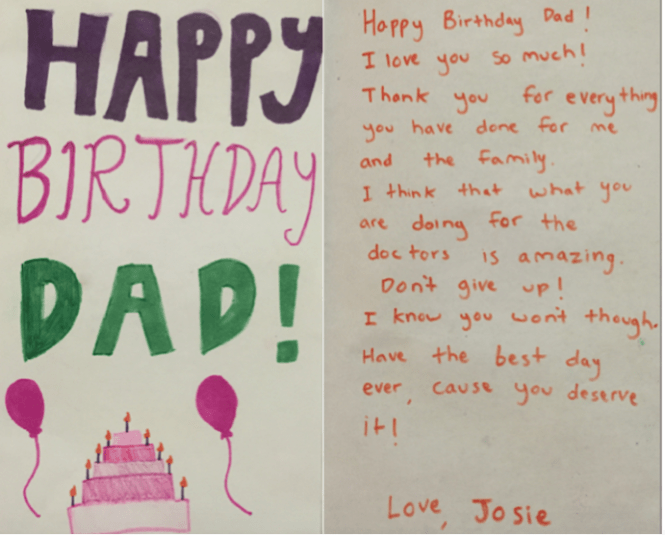 HAPPY
BIRTHDAY
DAD!
Happy Birthday Dad!
I love you so much!
Thank you for everything
you have done for me
and the family.
I think that what you
are doing for the
doctors is amazing.
Don't give up!
I know you won't though.
Have the best day
ever, cause you deserve
it!
Love, Josie